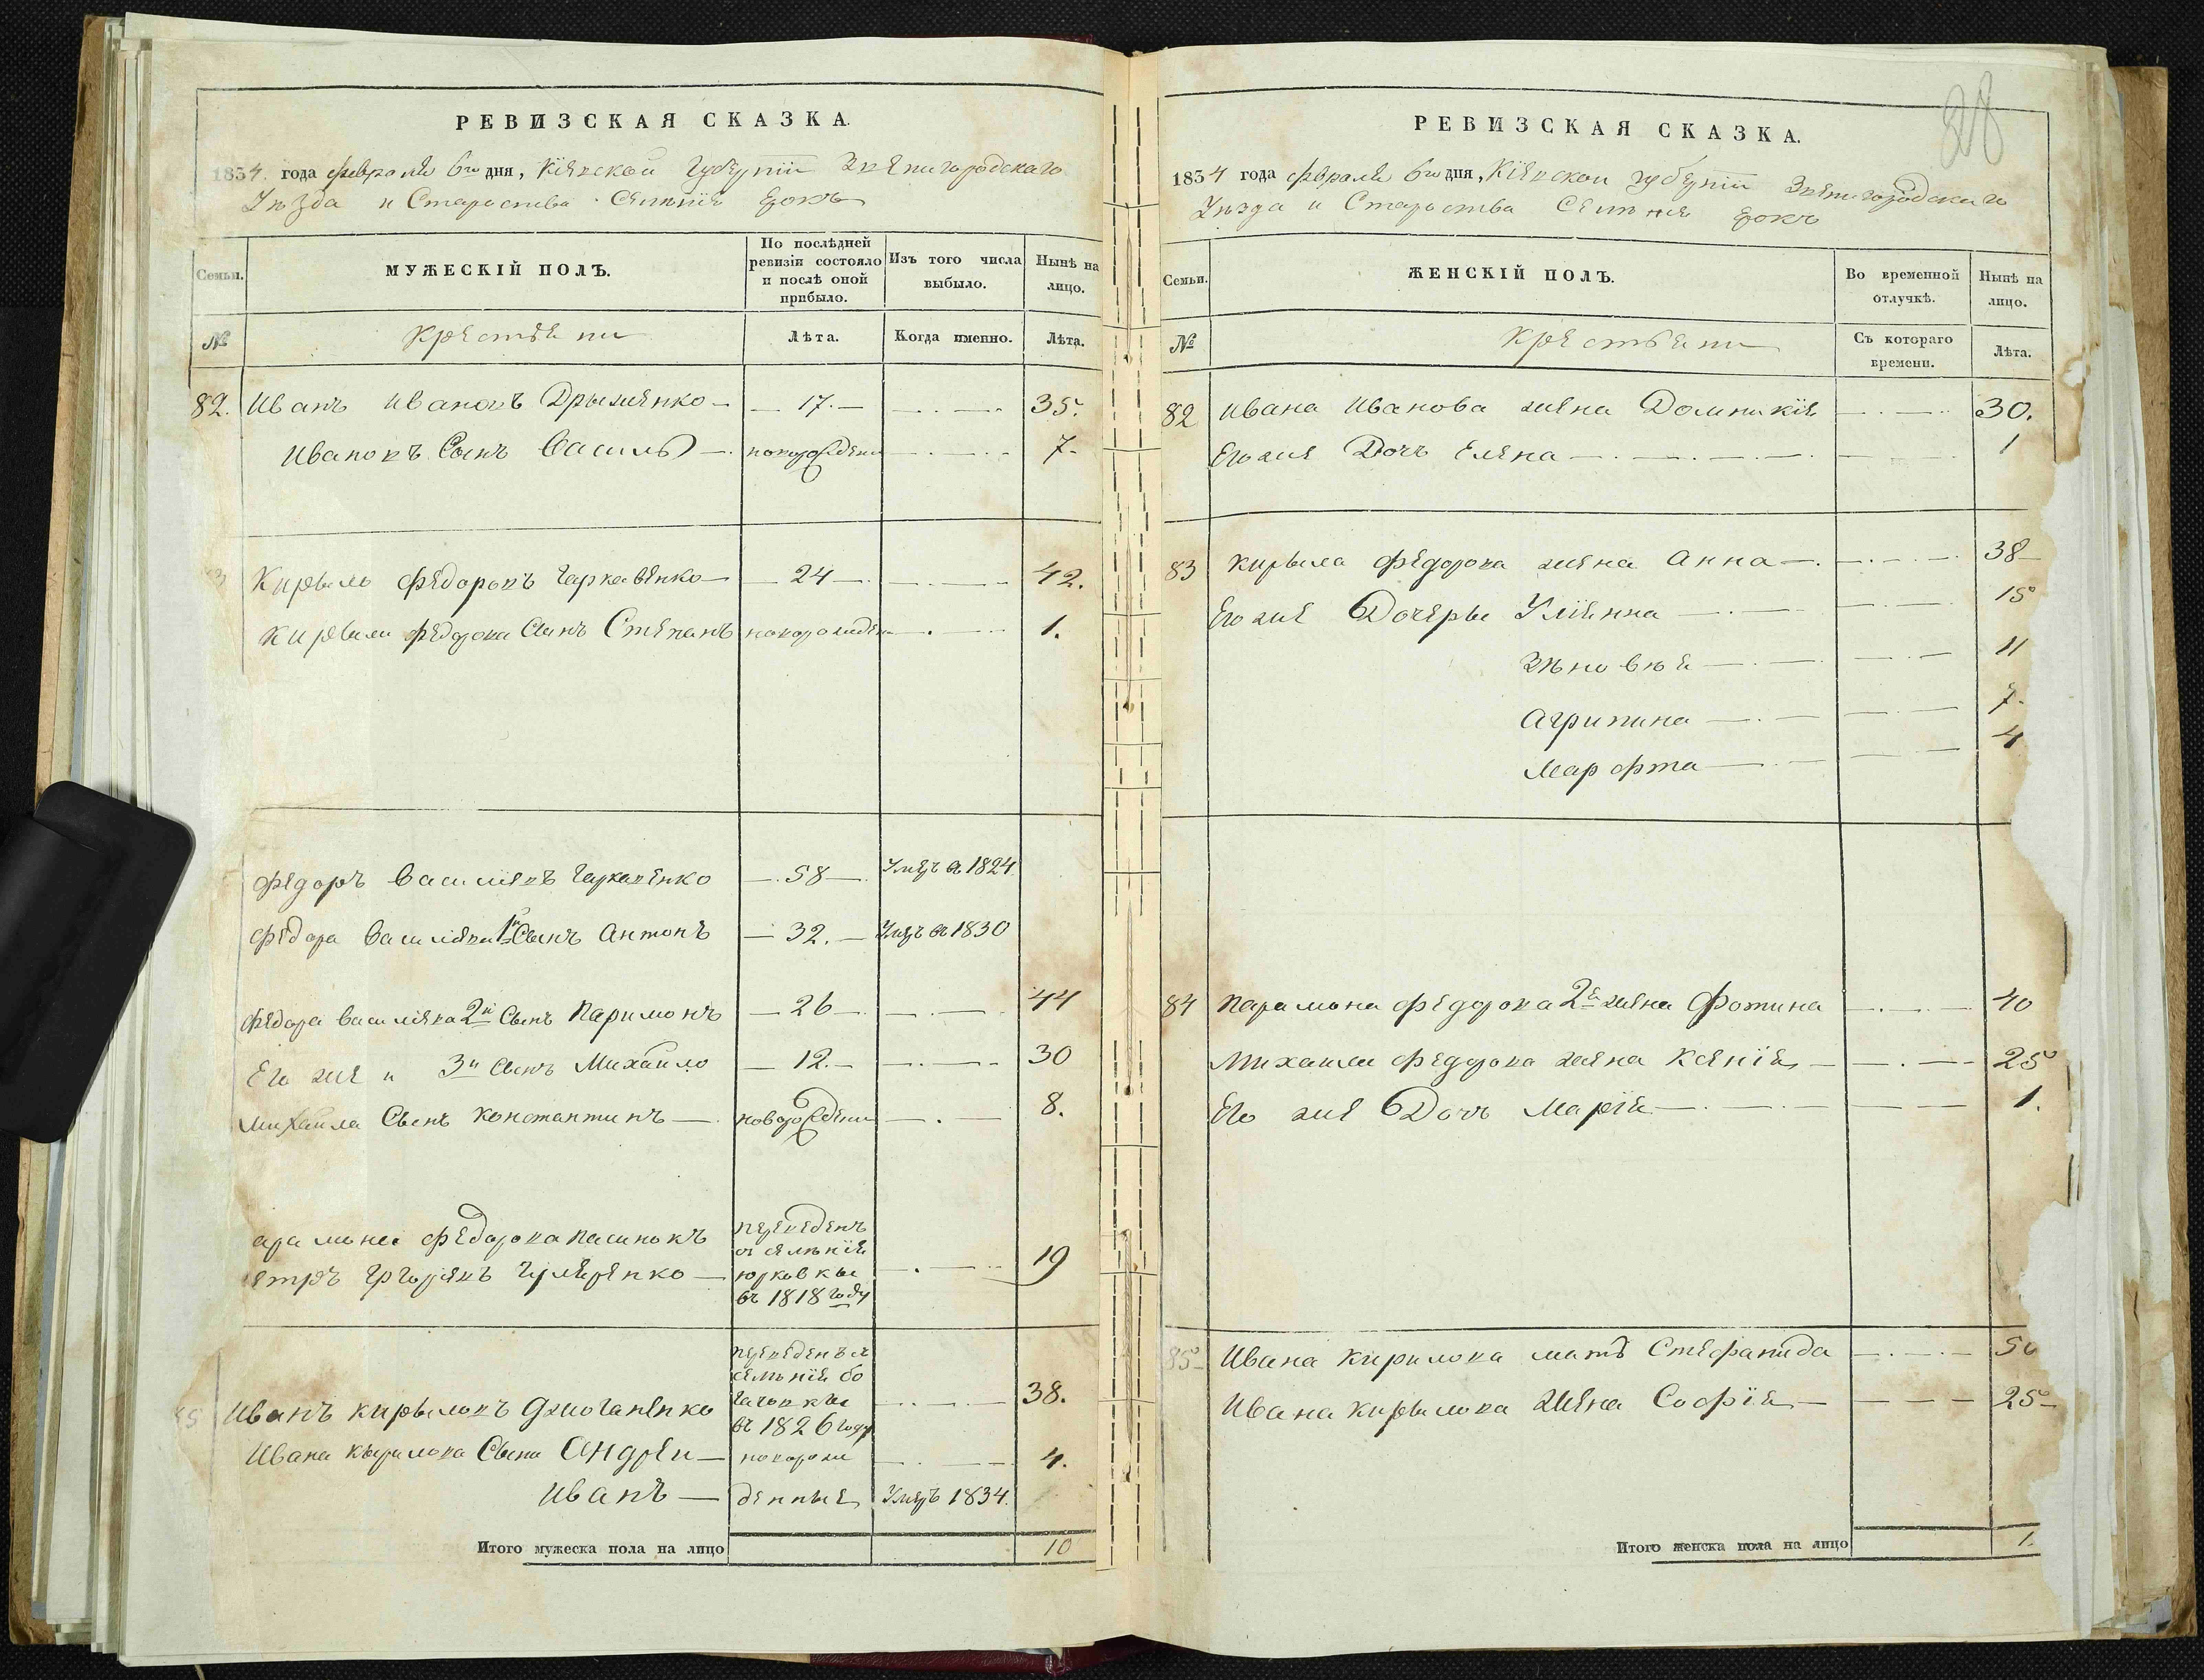 РЕВИЗСКАЯ СКАЗКА.
1834 года февраля 6го дня, Кіевской губерніи Звенигородскаго
Уѣзда и Староства Селенія
Семьи. МУЖЕСКІЙ ПОЛЪ. По послѣдней ревизіи состояло и послѣ оной прибыло. Изъ того числа выбыло. Нынѣ на лицо.
№ Крестьяни Лѣта. Когда именно. Лѣта.
82. Иванъ Ивановъ Дрыженко 17. 35.
Ивановъ Сынъ Василь новорожден 7.
Кирыло Федоровъ Чаркавенко 24 42.
Кирыли Федорова Сынъ Степанъ новорожден 1.
Федоръ Василіевъ Чаркавенко 58 Умеръ въ 1824
Федора Василіева 1й Сынъ Антонъ 32. Умеръ въ 1830
Федора Василіева 2й Сынъ Паримонъ 26 44
Его же и 3й Сынъ Михайло 12. 30
Михайла Сынъ Константинъ новорожден 8.
арамона Федорова пасинокъ переведенъ
етръ Григоріевъ 19
съ селенія
юрковкы
въ 1818 году
переведенъ съ
селенія бо
гачовкы
въ 1826 году
85 Иванъ Кирыловъ 38.
Ивана Кырилова Сыни Андрей новорож 4.
Иванъ денные Умеръ 1834.
Итого мужеска пола на лицо 10
28
РЕВИЗСКАЯ СКАЗКА.
1834 года февраля 6го дня, Кіевской губерніи Звенигородскаго
Уѣзда и Староства Селенія
Семьи. ЖЕНСКІЙ ПОЛЪ. Во временной отлучкѣ. Нынѣ на лицо.
№ Крестьяни Съ котораго времени. Лѣта.
82 Ивана Иванова жена Домникія 30.
Его же Дочъ Елена 1
83 Кирыла Федорова жена Анна 38
Его же Дочеры Уліянна 15
Зѣновія 11
Агрипина 7.
Марфта 4
84 Парамона Федорова 2я жена Фотина 40
Михаили Федорова жена Ксенія 25
Его же Дочъ Марія 1.
85 Ивана Кирилова мать Стефанида 50
Ивана Кирылова жена Софія 25
Итого женска пола на лицо 1